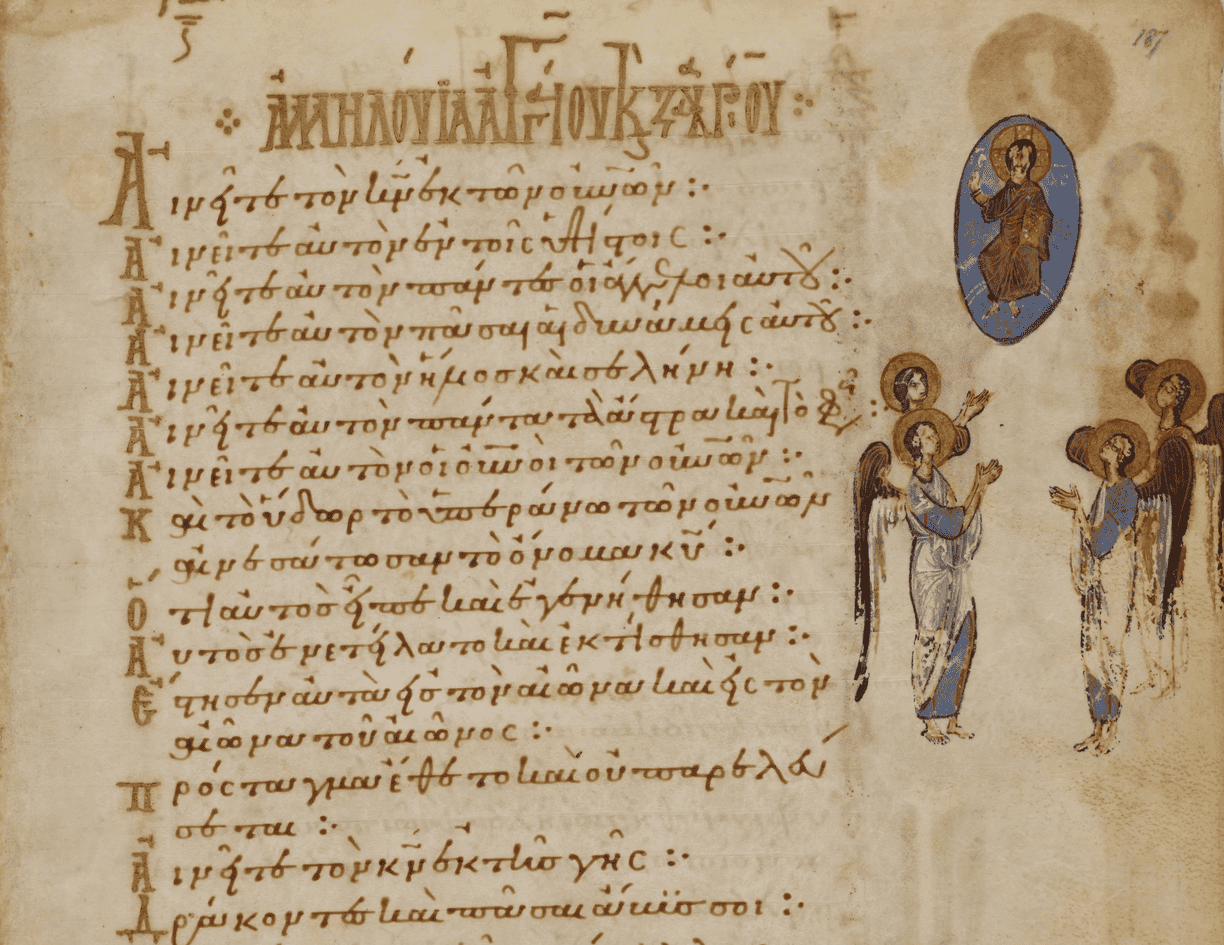 187
ἈΛΛΗΛΟΥΪΑ ἈΓΓΑΙΟΥ Κ ΖΑΧΑΡΙΟΥ
Αἰνεῖτε τὸν κ̅ν̅ ἐκ τῶν οὐ̅νῶν :·
Ἀινεῖτε ἀυτὸν ἐν τοῖς ὑψίστοις :·
Ἀινεῖτε ἀυτὸν πάντες οἱ ἄγγελοι ἀυτοῦ :·
Ἀινεῖτε ἀυτὸν πᾶσαι αἱ δυνάμεις ἀυτοῦ :·
Ἀινεῖτε ἀυτὸν ἥλιος καὶ σελήνη :·
Ἀινεῖτε ἀυτὸν πάντα τὰ ἄστρα καὶ τὸ φῶς :·
Ἀινεῖτε ἀυτὸν οἱ οὐ̅νοὶ τῶν οὐ̅νῶν :·
Καὶ τὸ ὕδωρ τὸ ὑπεράνω τῶν οὐ̅νῶν
αἰνεσάτωσαν τὸ ὄνομα κ̅υ̅ :·
Ὅτι αὐτὸς εἶπε καὶ ἐγενήθησαν :·
Ἀυτὸς ἐνετείλατο καὶ ἐκτίσθησαν :·
Ἔστησεν αὐτὰ εἰς τὸν αἰῶνα καὶ εἰς τὸν
αἰῶνα τοῦ αἰῶνος :·
Πρόσταγμα ἔθετο καὶ οὐ παρελεύ
σεται :·
Ἀινεῖτε τὸν κ̅ν̅ ἐκ τῆς γῆς :·
Δράκοντες καὶ πᾶσαι ἄβυσσοι :·